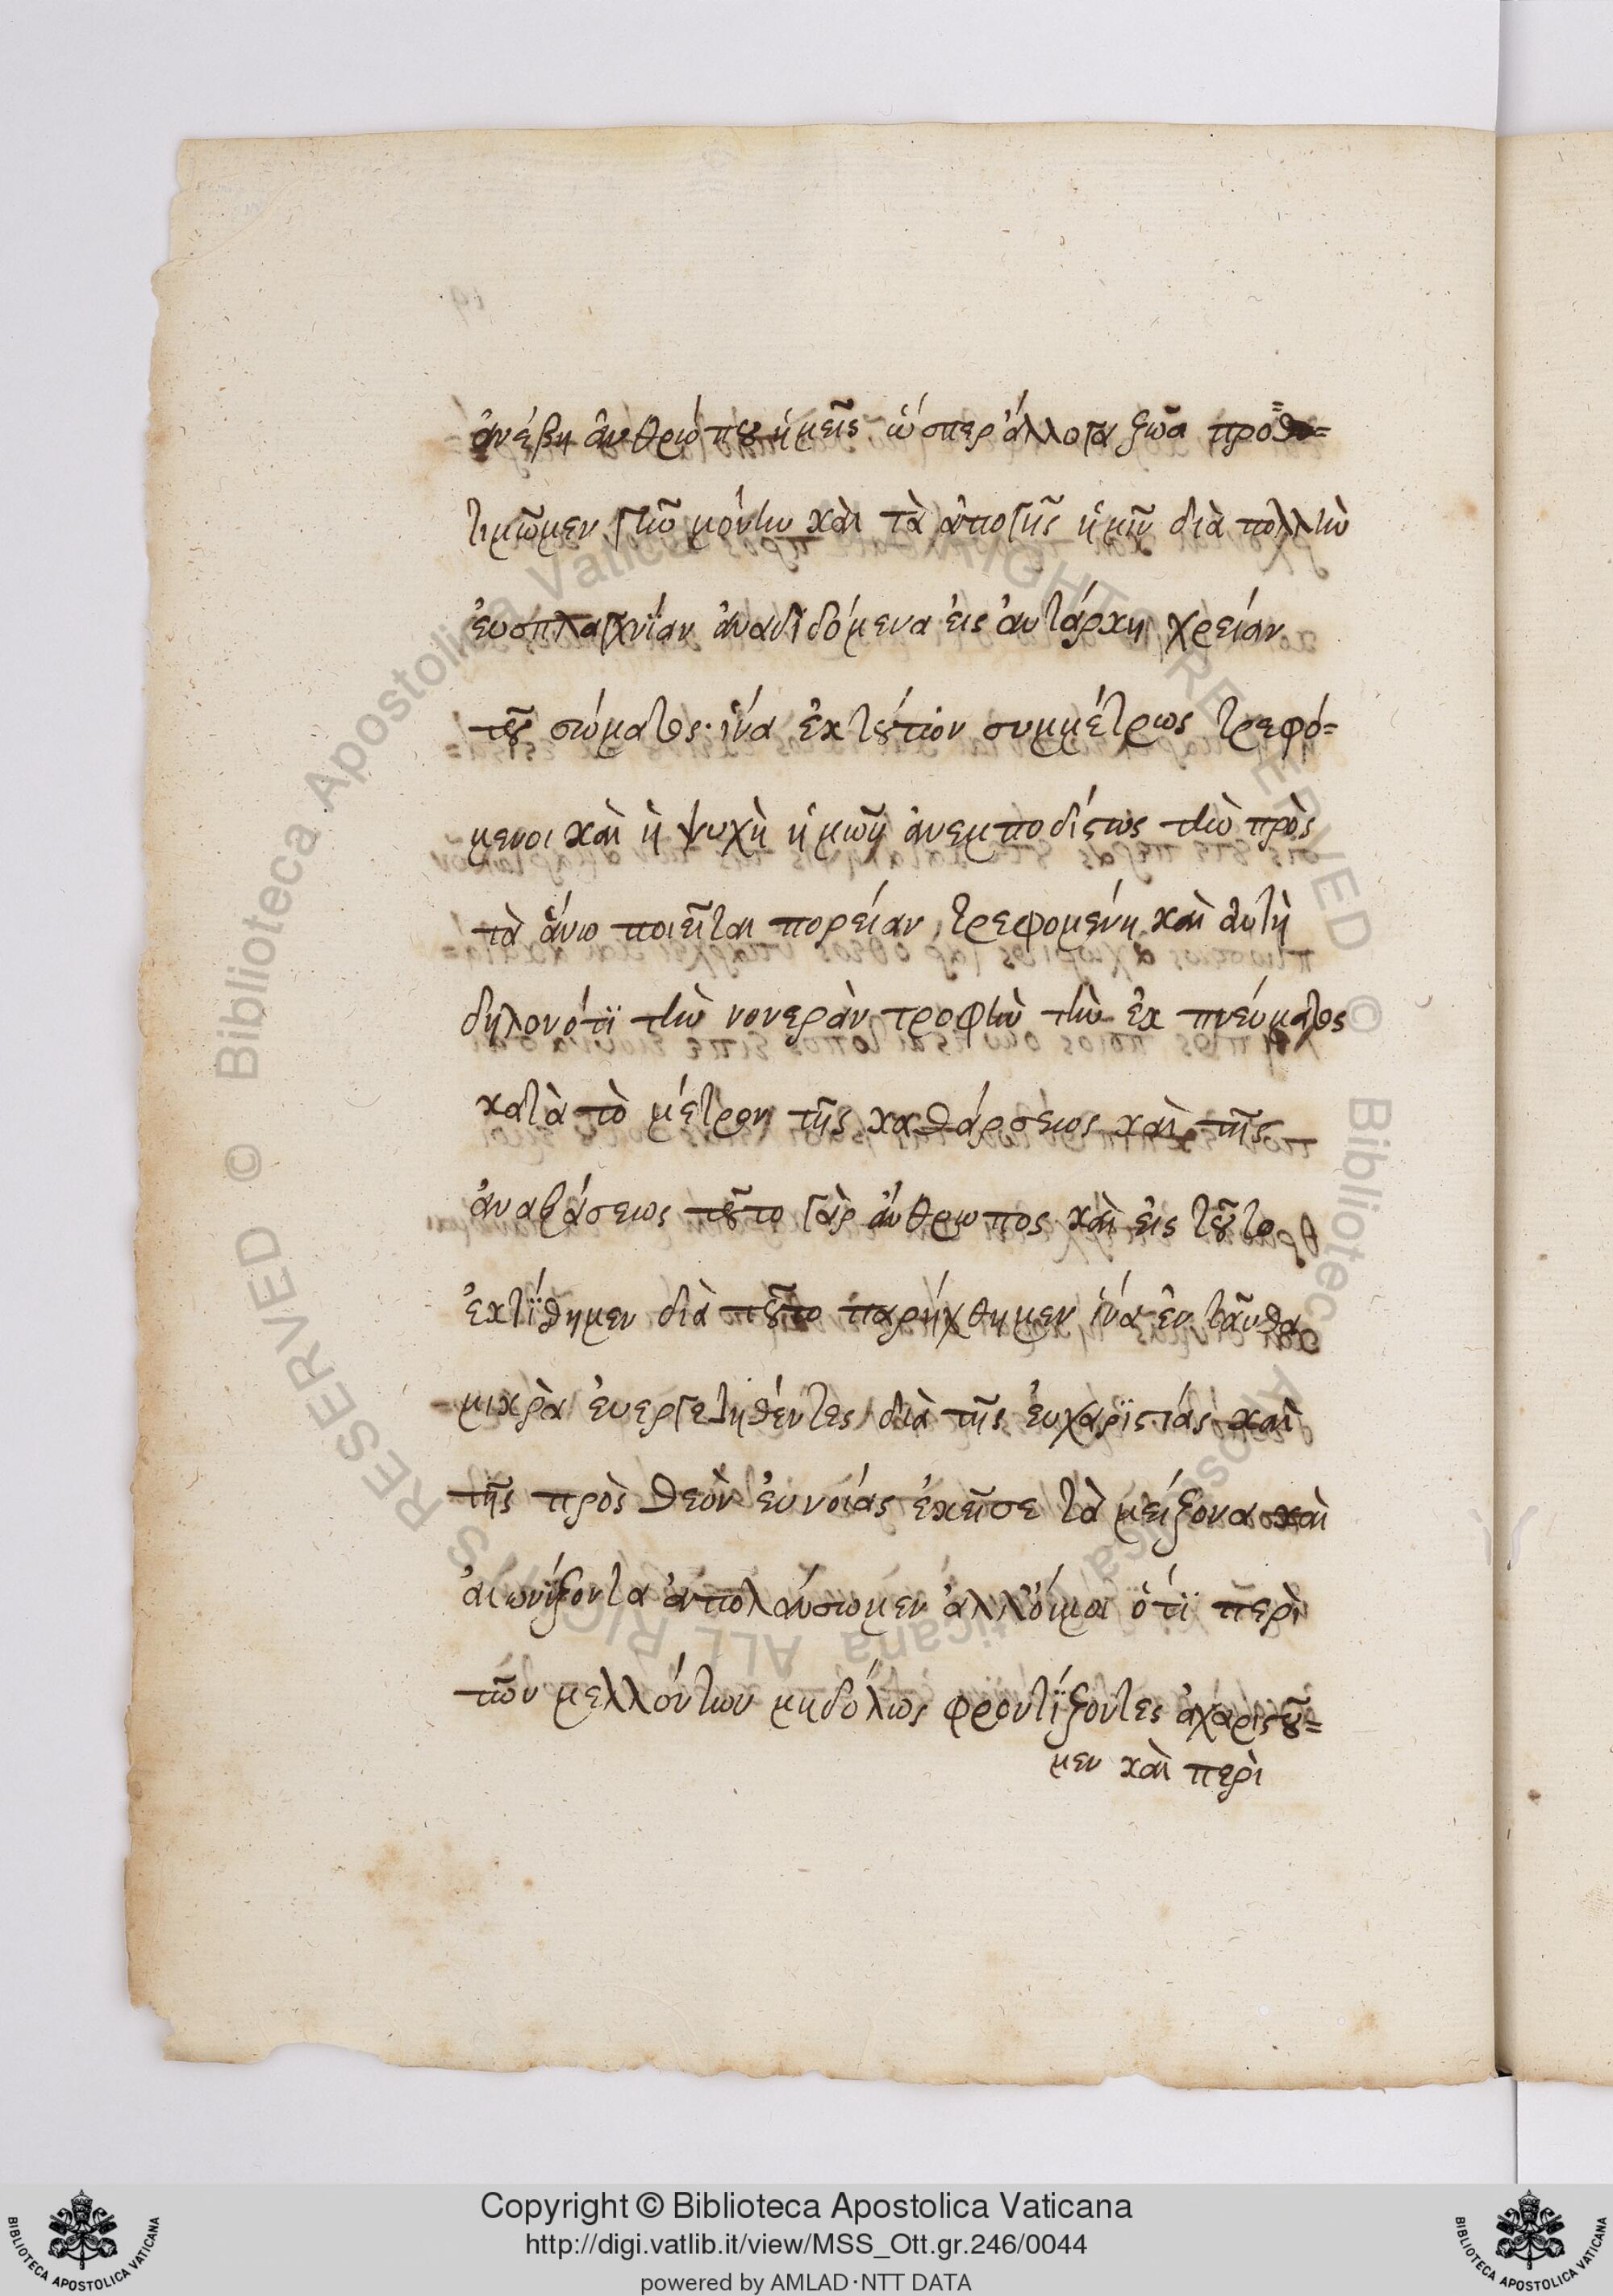 ἀνέβη ἀνθρώπου ἡμεῖς, ὥσπερ ἄλλοτα ζῶα προ
τιμῶμεν γῆν μόνην καὶ τὰ ἀπογῆς ἡμῖν διὰ πολλὴν
ἐυσπλαγχνΐαν ἀναδιδόμενα ἐις ἀυτάρκη χρείαν
τοῦ σώματος· ἵνα ἐκ τούτων συμμέτρως τρεφό=
μενοι καὶ ἡ ψυχὴ ἡμῶν ἀνεμποδίστως τὴν πρὸς
τὰ ἄνω ποιεῖται πορείαν, τρεφομένη καὶ ἀυτὴ
δηλονότϊ τὴν νονερὰν τροφὴν τὴν ἐκ πνεύματος
κατὰ τὸ μέτρον τῆς καθάρσέως καὶ τῆς
ἀναβάσεως τοῦτο γὰρ ἄνθρωπος καὶ ἐις τοῦτο
ἐκτΐθημεν διὰ τοῦτο παρήχθημεν ἵνα ἐν ταῦθα
μικρὰ ἐυεργετηθέντες διὰ τῆς ἐυχαρϊστίάς καὶ
τῆς πρὸς θεὸν ἐυνοίάς ἐκεῖσε τὰ μείζονα καὶ
ἀιωνΐζοντα ἀπολάυσωμεν ἀλλ' ὄιμοι ὅτϊ περὶ
τῶν μελλόντων μηδόλως φροντΐζοντες ἀχαριστοῦ=
μεν καὶ περὶ
Copyright © Biblioteca Apostolica Vaticana
http://digi.vatlib.it/view/MSS_Ott.gr.246/0044
powered by AMLAD·NTT DATA
BIBLIOTECA APOSTOLICA VATICANA
BIBLIOTECA APOSTOLICA VATICANA